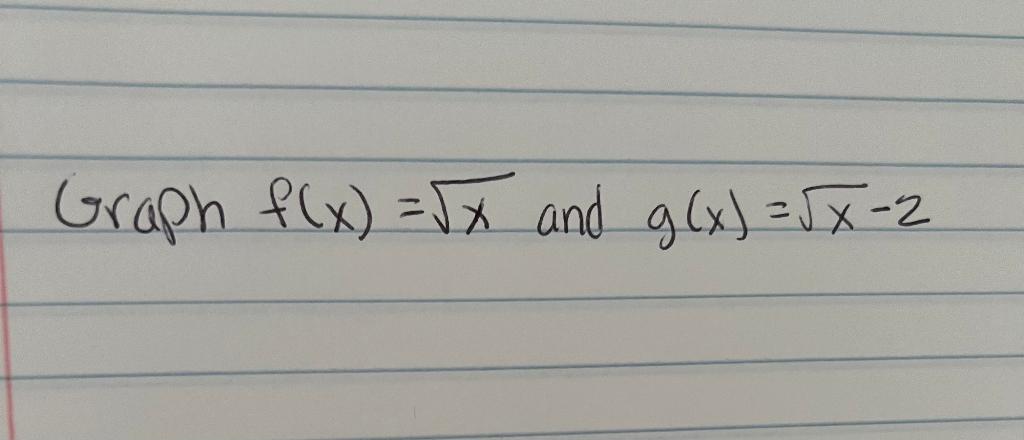 Graph f(x) = √x and g(x) = √x - 2